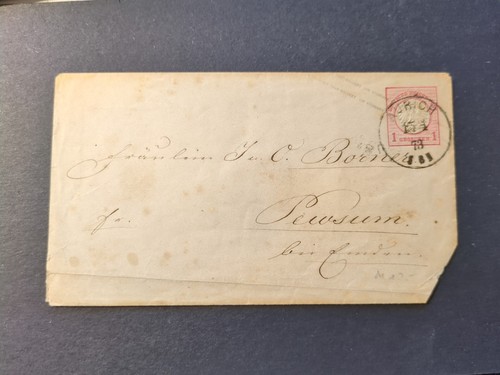 AURICH
17 4
73
1 1
Fräulein J. C. Borner
Pewsum.
bei Emden.